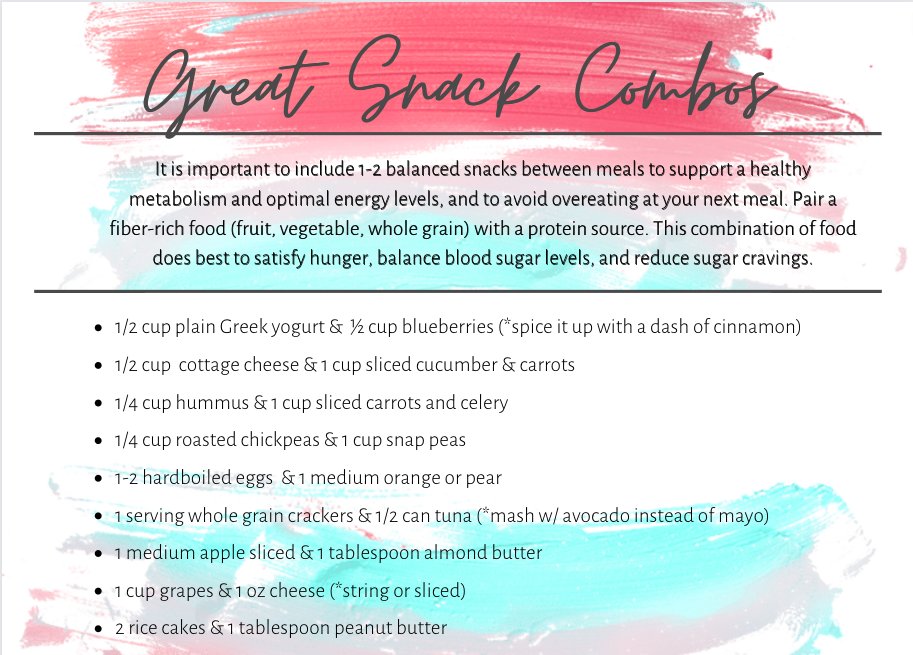 Great Snack Combos
It is important to include 1-2 balanced snacks between meals to support a healthy
metabolism and optimal energy levels, and to avoid overeating at your next meal. Pair a
fiber-rich food (fruit, vegetable, whole grain) with a protein source. This combination of food
does best to satisfy hunger, balance blood sugar levels, and reduce sugar cravings.
• 1/2 cup plain Greek yogurt & ½ cup blueberries (*spice it up with a dash of cinnamon)
• 1/2 cup cottage cheese & 1 cup sliced cucumber & carrots
• 1/4 cup hummus & 1 cup sliced carrots and celery
• 1/4 cup roasted chickpeas & 1 cup snap peas
• 1-2 hardboiled eggs & 1 medium orange or pear
• 1 serving whole grain crackers & 1/2 can tuna (*mash w/ avocado instead of mayo)
• 1 medium apple sliced & 1 tablespoon almond butter
• 1 cup grapes & 1 oz cheese (*string or sliced)
• 2 rice cakes & 1 tablespoon peanut butter